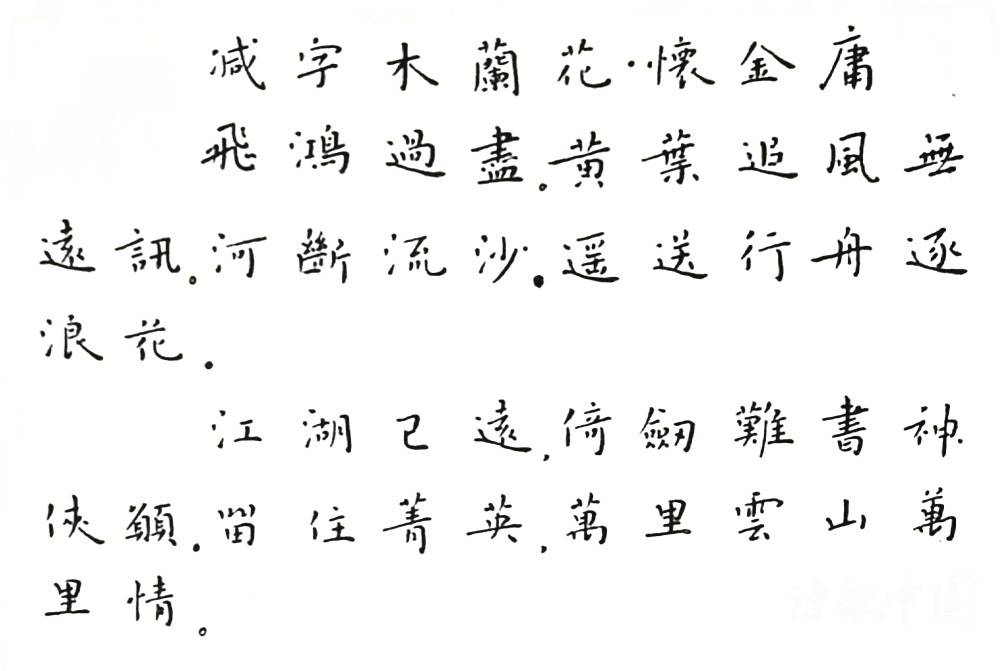 减字木蘭花·懷金庸
飛鴻過盡。黄葉追風無
遠訊。河斷流沙。遥送行舟逐
浪花.
江湖已遠,倚劒難書神
俠願.留住菁英,萬里雲山萬
里情。
诗歌中国